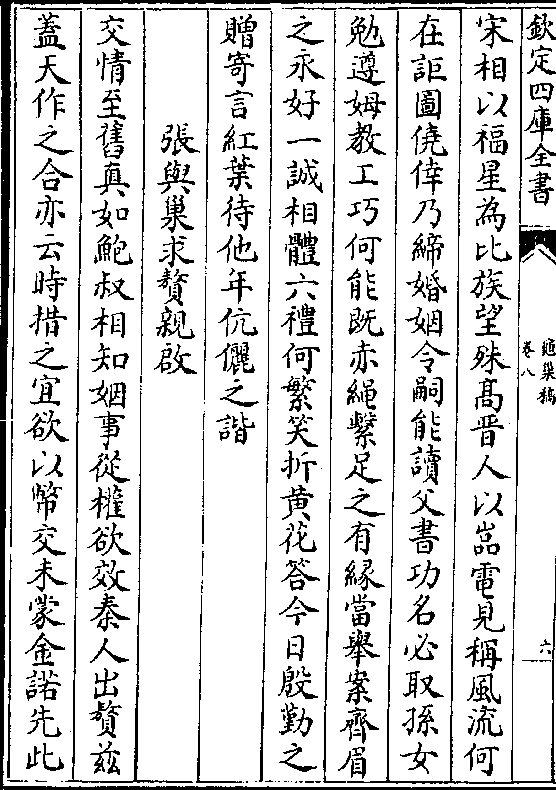 欽定四庫全書
巢稿
卷八
六
宋相以福星為比族望殊髙晋人以嵓電見稱風流何
在詎圖僥倖乃締婚姻令嗣能讀父書功名必取孫女
勉遵姆教工巧何能既赤繩繫足之有緣當舉案齊眉
之永好一誠相體六禮何繁笑折黄花答今日殷勤之
贈寄言紅葉待他年伉儷之諧
張與巢求贅親啟
交情至舊真如鮑叔相知姻事從權欲效秦人出贅兹
蓋天作之合亦云時措之宜欲以幣交未蒙金諾先此